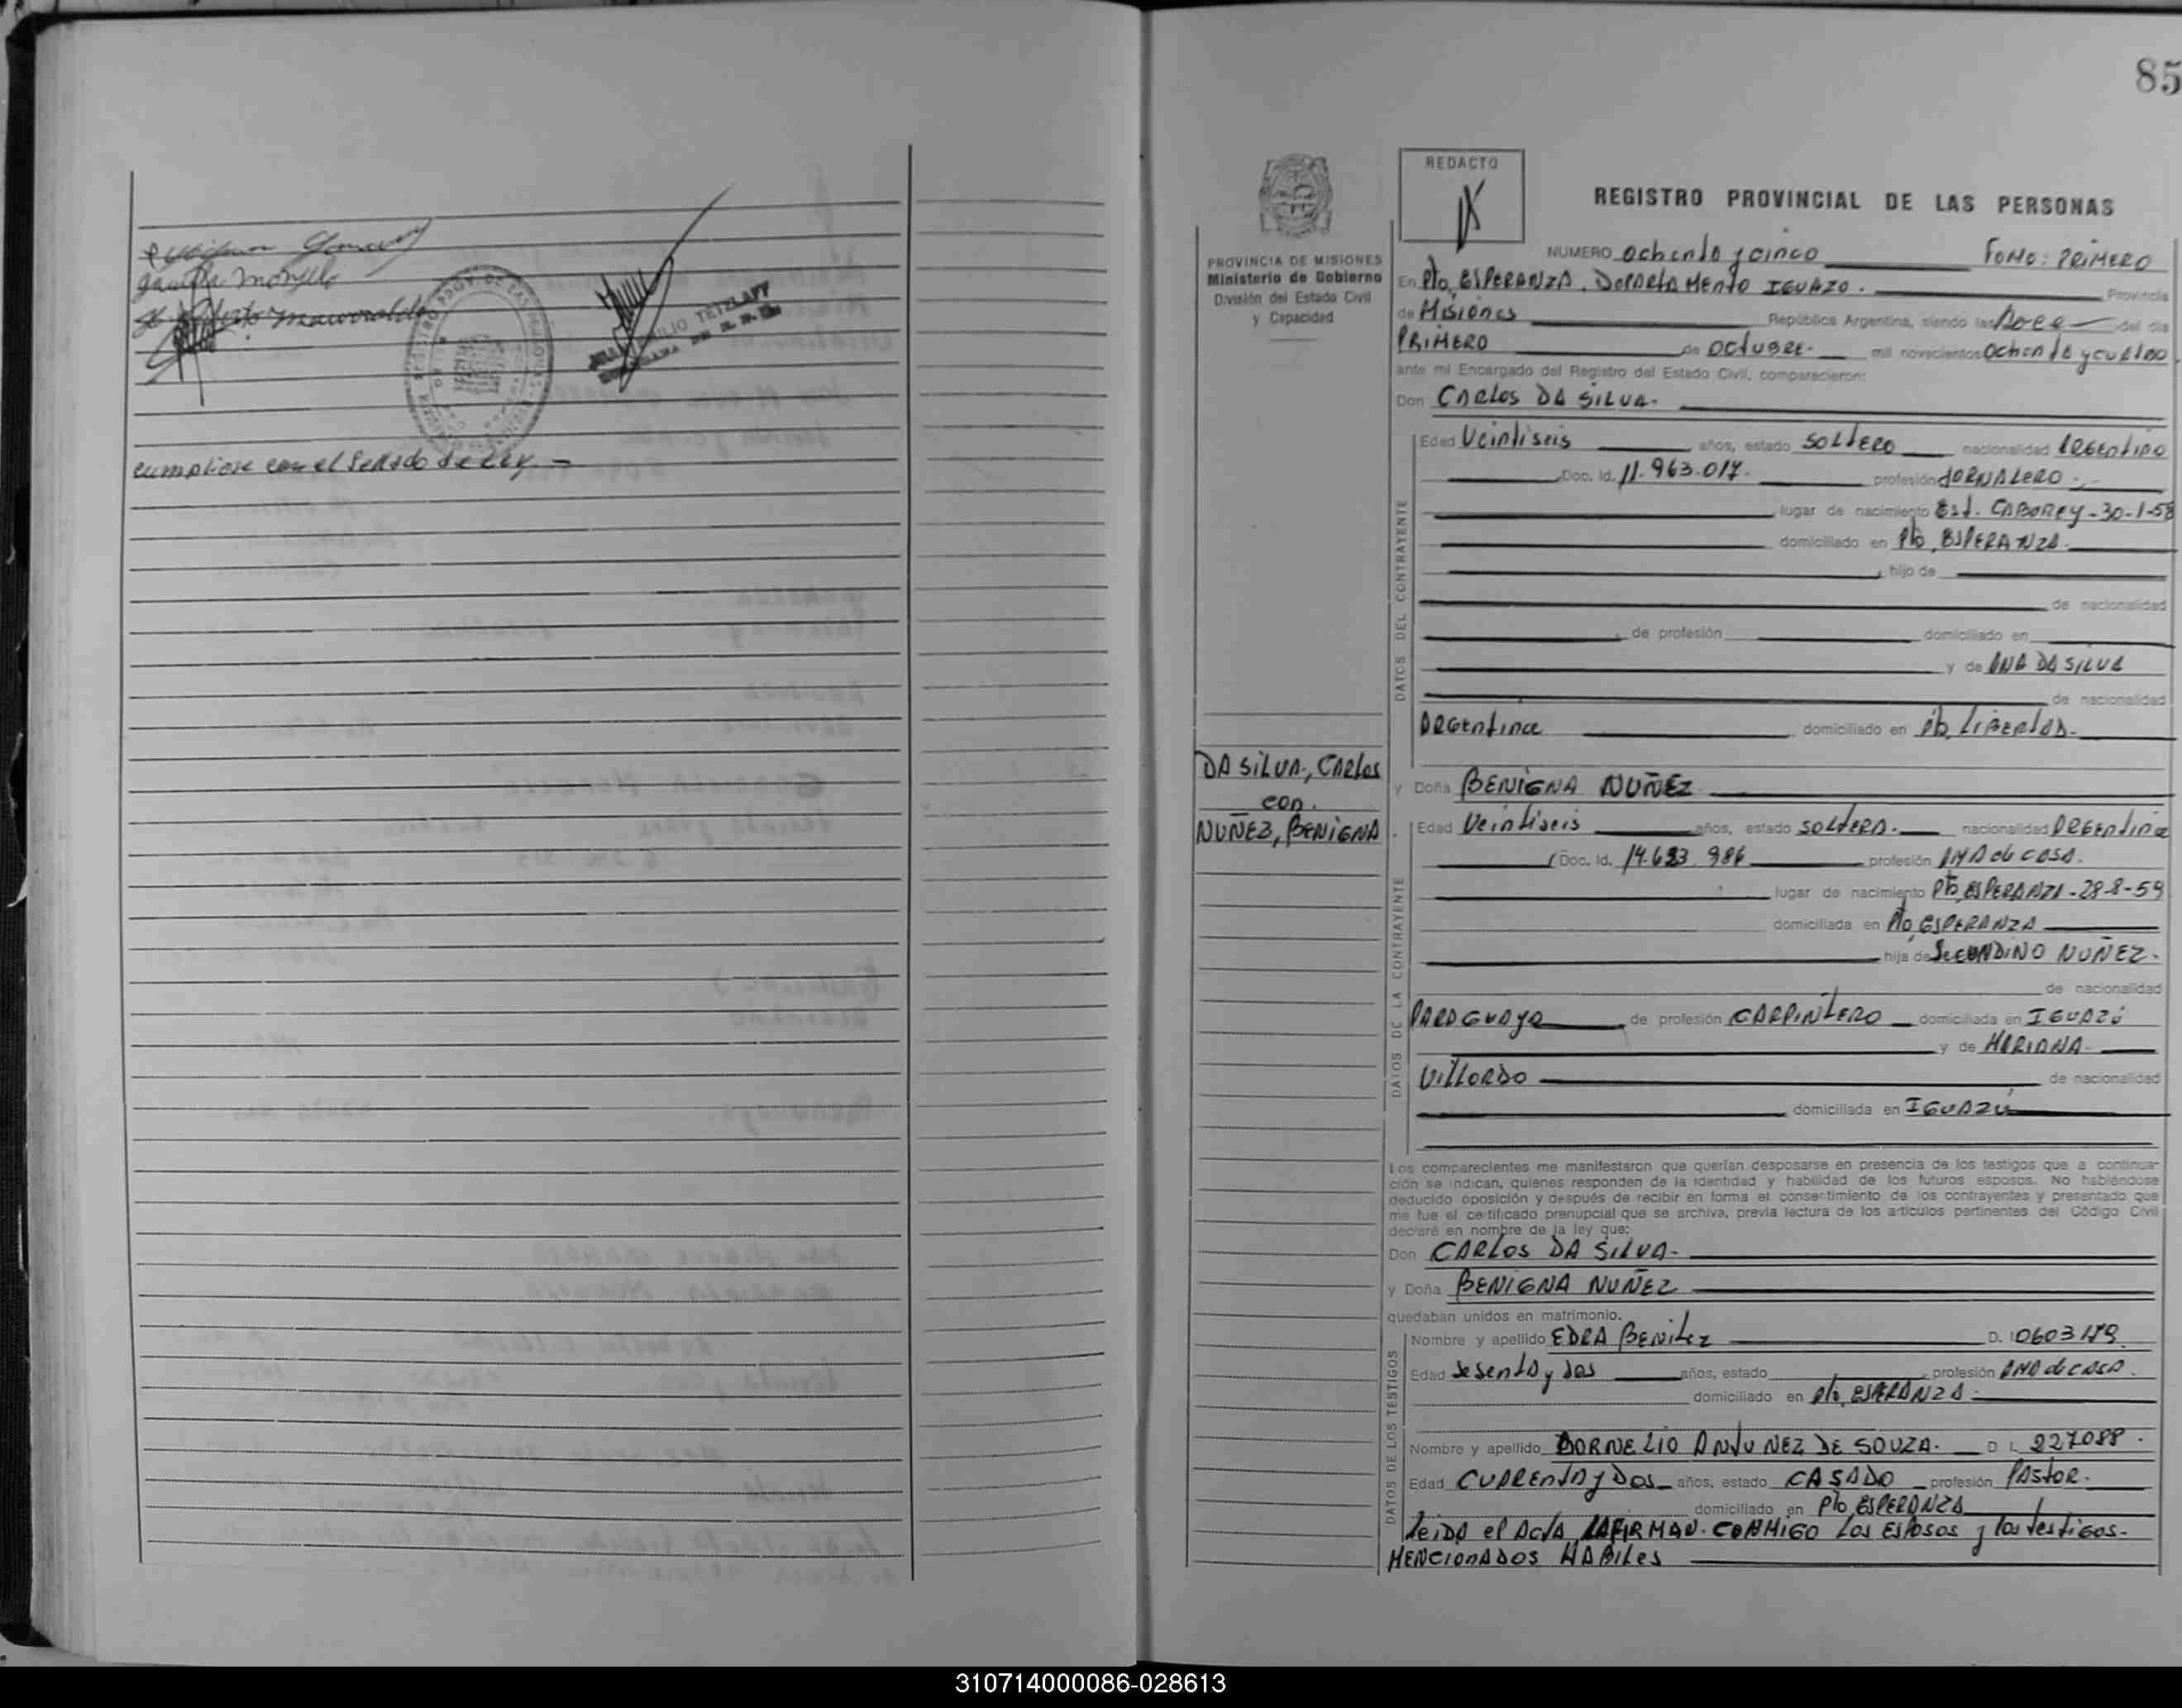 cumpliose con el Sellado de Ley. -
85
REDACTO
REGISTRO PROVINCIAL DE LAS PERSONAS
NUMERO ochenta y cinco TOMO: PRIMERO
PROVINCIA DE MISIONES
Ministerio de Gobierno
División del Estado Civil
y Capacidad
En Pto. ESPERANZA. DEPARTAMENTO IGUAZU. Provincia
de Misiones República Argentina, siendo las doce del día
PRIMERO de octubre. mil novecientos ochenta y cuatro
ante mí Encargado del Registro del Estado Civil, comparecieron:
Don CARLOS DA SILVA.
DATOS DEL CONTRAYENTE
Edad Veintiseis años, estado SOLTERO nacionalidad ARGENTINO
Doc. Id. 11.963.017. profesión JORNALERO.
lugar de nacimiento Est. CABUREY-30-1-58
domiciliado en Pto. ESPERANZA.
hijo de
de nacionalidad
de profesión domiciliado en
y de ANA DA SILVA
de nacionalidad
ARGENTINA domiciliado en Pto. LIBERTAD.
DA SILVA, CARLOS
con.
NUÑEZ, BENIGNA
y Doña BENIGNA NUÑEZ
DATOS DE LA CONTRAYENTE
Edad Veintiseis años, estado SOLTERA. nacionalidad ARGENTINA
Doc. Id. profesión AMA de CASA.
lugar de nacimiento Pto. ESPERANZA-28-8-59
domiciliada en Pto. ESPERANZA
hija de SECUNDINO NUÑEZ.
de nacionalidad
PARAGUAYO de profesión CARPINTERO domiciliada en IGUAZÚ
y de MARIANA
VILLORDO de nacionalidad
domiciliada en IGUAZÚ
Los comparecientes me manifestaron que querían desposarse en presencia de los testigos que a continua-
ción se indican, quienes responden de la identidad y habilidad de los futuros esposos. No habiéndose
deducido oposición y después de recibir en forma el consentimiento de los contrayentes y presentado que
me fue el certificado prenupcial que se archiva, previa lectura de los artículos pertinentes del Código Civil
declaré en nombre de la ley que:
Don CARLOS DA SILVA.
y Doña BENIGNA NUÑEZ
quedaban unidos en matrimonio.
DATOS DE LOS TESTIGOS
Nombre y apellido EDRA BENITEZ D.
Edad sesenta y dos años, estado profesión AMA de CASA.
domiciliado en Pto. ESPERANZA.
Nombre y apellido DORNELIO ANTUNEZ DE SOUZA. D I. 227088.
Edad CUARENTA y DOS años, estado CASADO profesión PASTOR.
domiciliado en Pto. ESPERANZA
Leida el Acta LA FIRMAN. CONMIGO LOS ESPOSOS y los testigos.
MENCIONADOS HABILES
310714000086-028613